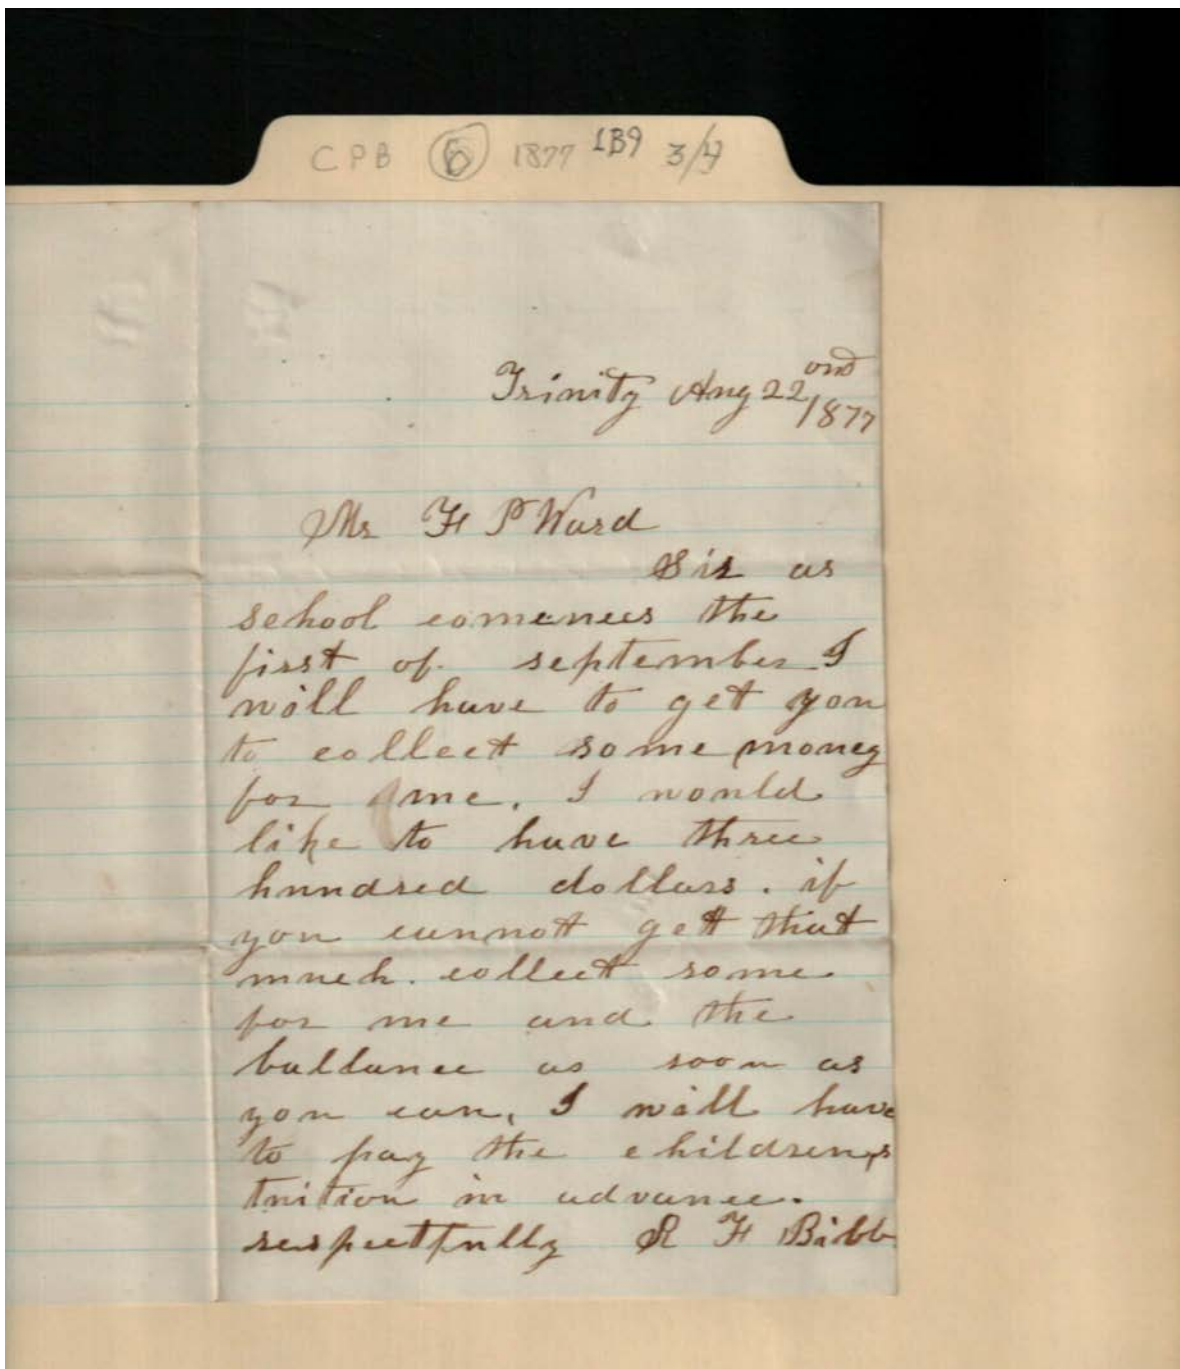 CPB 6 1877 1B9 3/4
Trinity Aug 22ond
1877
Mr F P Ward
Sir as
school comences the
first of september I
will have to get you
to collect some money
for me. I would
like to have three
hundred dollars. if
you cannott gett that
much. collect some
for me and the
ballance as soon as
you can, I will have
to pay the children,s
tuition in advance.
respectfully S F Bibb